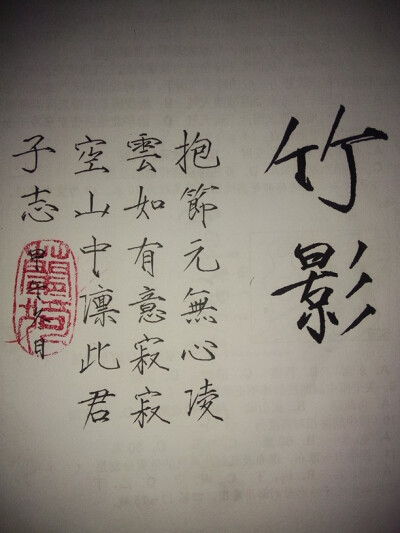 竹影
抱節元無心陵
雲如有意寂寂
空山中凛此君
子志